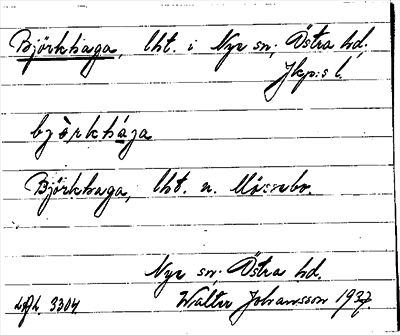 Björkhaga, lht. i Nye sn; Östra hd,
Jkp:s l.
bjòrkhága
Björkhaga, lht. u.
Nye sn; Östra hd.
3304. Walter Johansson 1937.